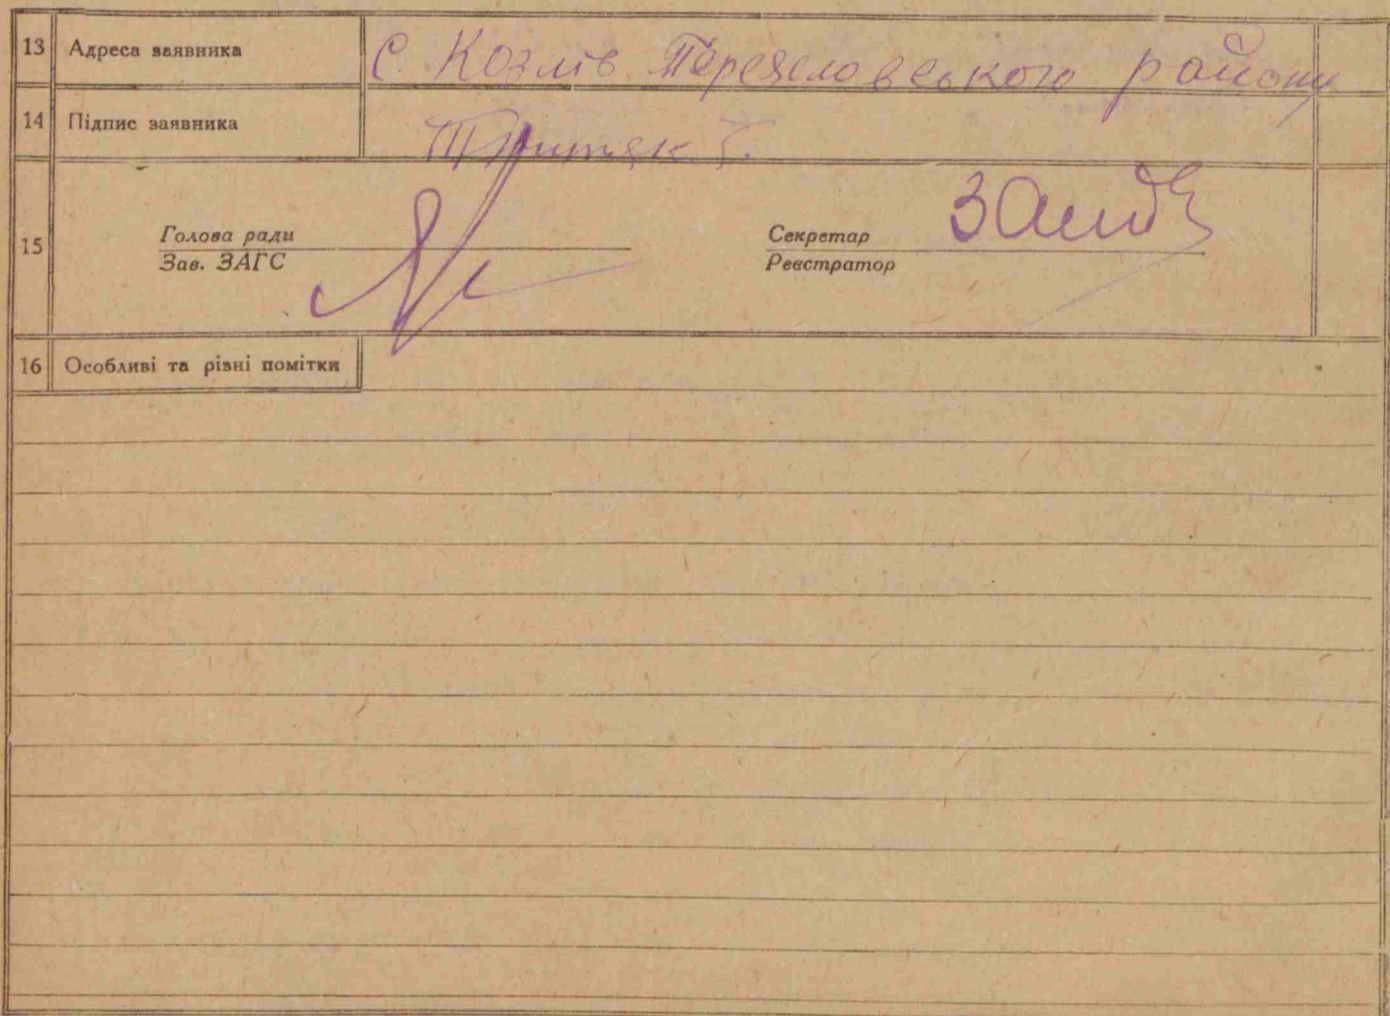 13 Адреса заявника С. Козлів Переяслов ського району
14 Підпис заявника
15 Голова ради
Зав. ЗАГС
Секретар
Реєстратор
16 Особливі та різні помітки